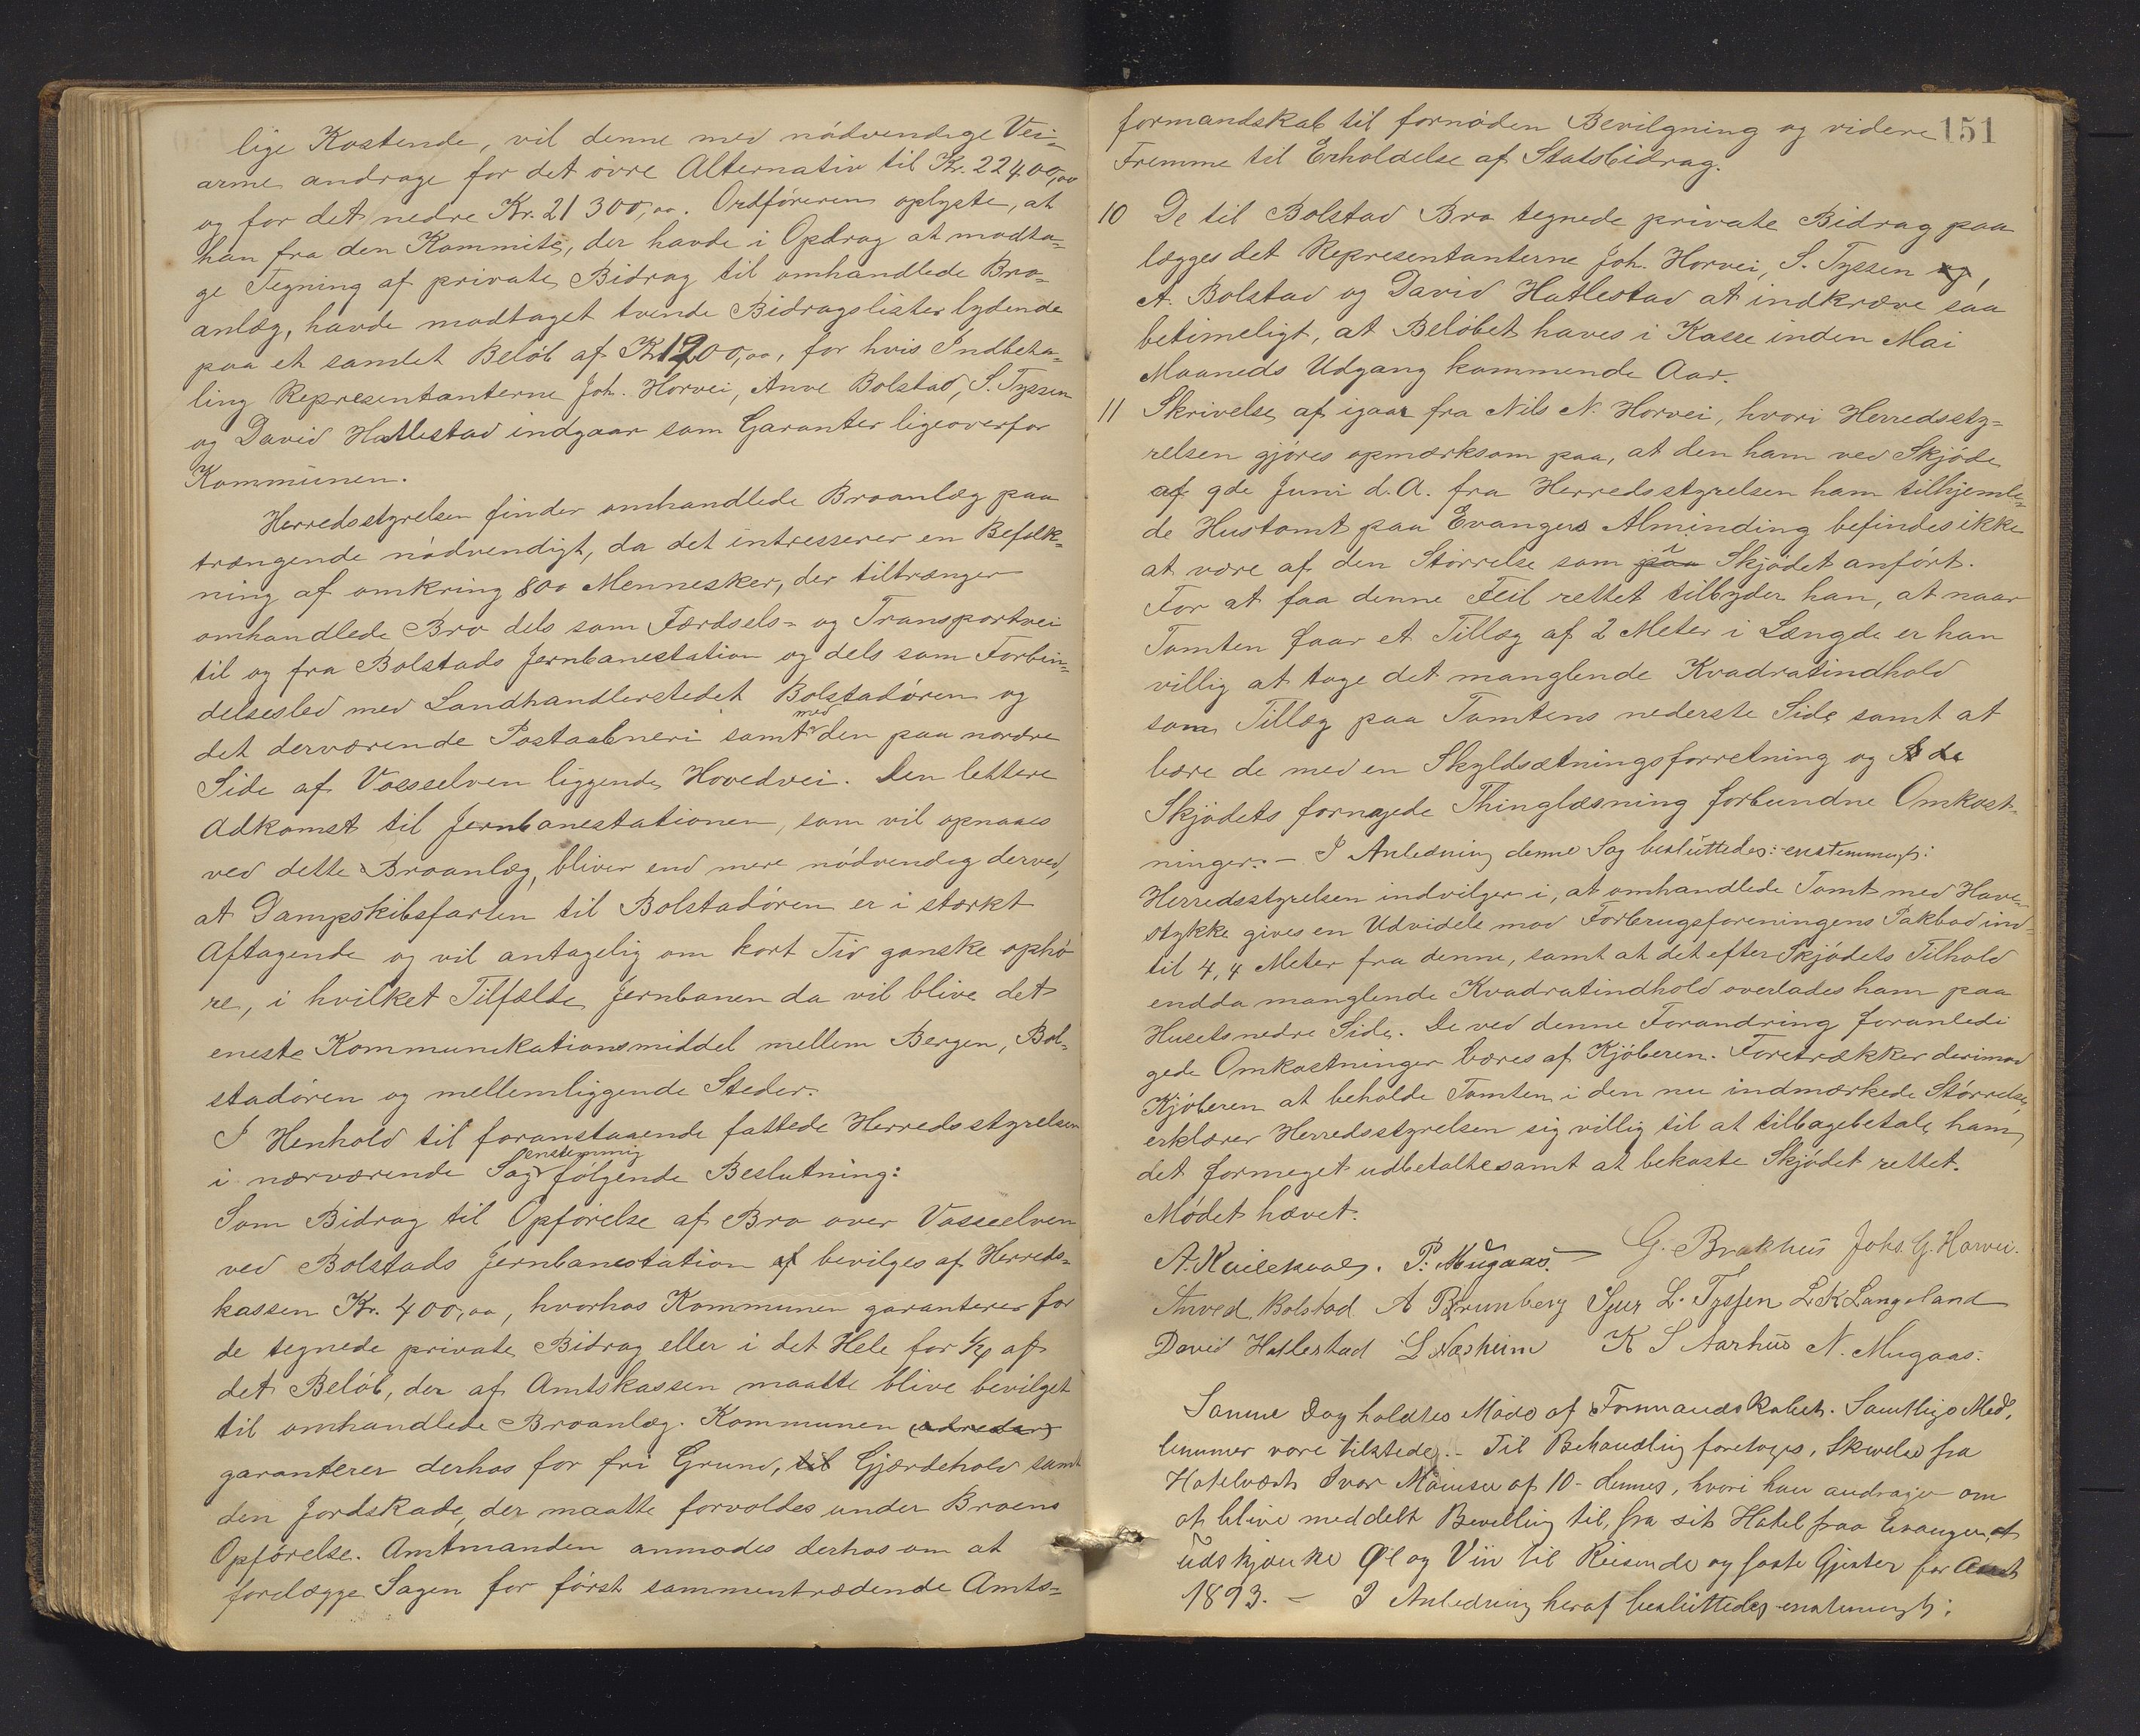 lige Kostende, vil denne med nødvendige Vei=
arme andrage for det øvre Alternativ til Kr. 22400,00
og for det nedre Kr. 21300,00. Ordføreren oplyste, at
han fra den Kommite, der havde i Opdrag at modta=
ge Tegning af private Bidrag til omhandlede Bro=
anlæg, havde modtaget tvende Bidragslister lydende
paa et samlet Beløb af Kr 1200,00, for hvis Indbeta=
ling Repræsentanterne Joh. Horvei, Anve Bolstad, S. Tyssen
og David Hatlestad indgaar som Garanter ligeoverfor
Kommunen.
Herredsstyrelsen finder omhandlede Broanlæg paa
trængende nødvendigt, da det intresserer en Befolk=
ning af omkring 800 Mennesker, der tiltrænger
omhandlede Bro dels som Færdsels= og Transportvei
til og fra Bolstads Jernbanestation og dels som Forbin=
delsesled med Landhandlerstedet Bolstadøren og
det derværende Postaabneri samt med den paa nordre
Side af Vosseelven liggende Hovedvei. Den lettere
Adkomst til Jernbanestationen, som vil opnaaes
ved dette Broanlæg, bliver end mere nødvendig derved,
at Dampskibsfarten til Bolstadøren er i stærkt
Aftagende og vil antagelig om kort Tid ganske ophø
re, i hvilket Tilfælde Jernbanen da vil blive det
eneste Kommunikationsmiddel mellem Bergen, Bol=
stadøren og mellemliggende Steder.
I Henhold til foranstaaende fattede Herredsstyrelsen
i nærværende Sag enstemmig følgende Beslutning:
Som Bidrag til Opførelse af Bro over Vosseelven
ved Bolstads Jernbanestation af bevilges af Herreds=
kassen Kr. 400,00, hvorhos Kommunen garanterer for
de tegnede private Bidrag eller i det Hele for 1/4 af
det Beløb, der af Amtskassen maatte blive bevilget
til omhandlede Broanlæg. Kommunen (udreder)
garanterer derhos for fri Grund, til Gjærdehold samt
den Jordskade, der maatte forvoldes under Broens
Opførelse. Amtmanden anmodes derhos om at
forelægge Sagen for først sammentrædende Amts=
151
formandskab til fornøden Bevilgning og videre
Fremme til Erholdelse af Statsbidrag.
10 De til Bolstad Bro tegnede private Bidrag paa
lægges det Repræsentanterne Joh. Horvei, S. Tyssen og,
A. Bolstad og David Hatlestad at indkræve saa
betimeligt, at Beløbet haves i Kasse inden Mai
Maaneds Udgang kommende Aar.
11 Skrivelse af igaar fra Nils N. Horvei, hvori Herredssty=
relsen gjøres opmærksom paa, at den ham ved Skjøde
af 9de Juni d.A. fra Herredsstyrelsen ham tilhjemle=
de Hustomt paa Evangers Alminding befindes ikke
at være af den Størrelse som paa i Skjødet anført.
For at faa denne Feil rettet tilbyder han, at naar
Tomten faar et Tillæg af 2 Meter i Længde er han
villig at tage det manglende Kvadratindhold
som Tillæg paa Tomtens nederste Side samt at
bære de med en Skyldsætningsforretning og de
Skjødets fornyede Thinglæsning forbundne Omkost-
ninger. – I Anledning denne Sag besluttedes: enstemmigt:
Herredsstyrelsen indvilger i, at omhandlede Tomt med Have-
stykke gives en Udvidele mod Forbrugsforeningens Pakbod ind-
til 4,4 Meter fra denne, samt at det efter Skjødets Tilhold
endda manglende Kvadratindhold overlades ham paa
Husets nedre Side. De ved denne Forandring foranledi
gede Omkostninger bæres af Kjøberen. Foretrækker derimod
Kjøberen at beholde Tomten i den nu indmærkede Størrelse,
erklærer Herredsstyrelsen sig villig til at tilbagebetale ham
det formeget udbetalte samt at bekoste Skjødet rettet.
Mødet hævet.
P. Mugaas. G. Brakhus Johs. G. Horvei.
Anved Bolstad A Brunberg Sjur L. Tyssen L K Langeland
David Hatlestad L Næsheim K S Aarhus N. Mugaas.
Samme Dag holdtes Møde af Formandskabet. Samtlige Med.
lemmer vare tilstede. – Til Behandling foretoges, Skrivelse fra
Hotelvært Ivar af 10- dennes, hvori han andrager om
at blive meddelt Bevilling til, fra sit Hotel paa Evanger, at
udskjænke Øl og Viin til Reisende og faste Gjester for Aaret
1893. – I Anledning heraf besluttedes enstemmigt: